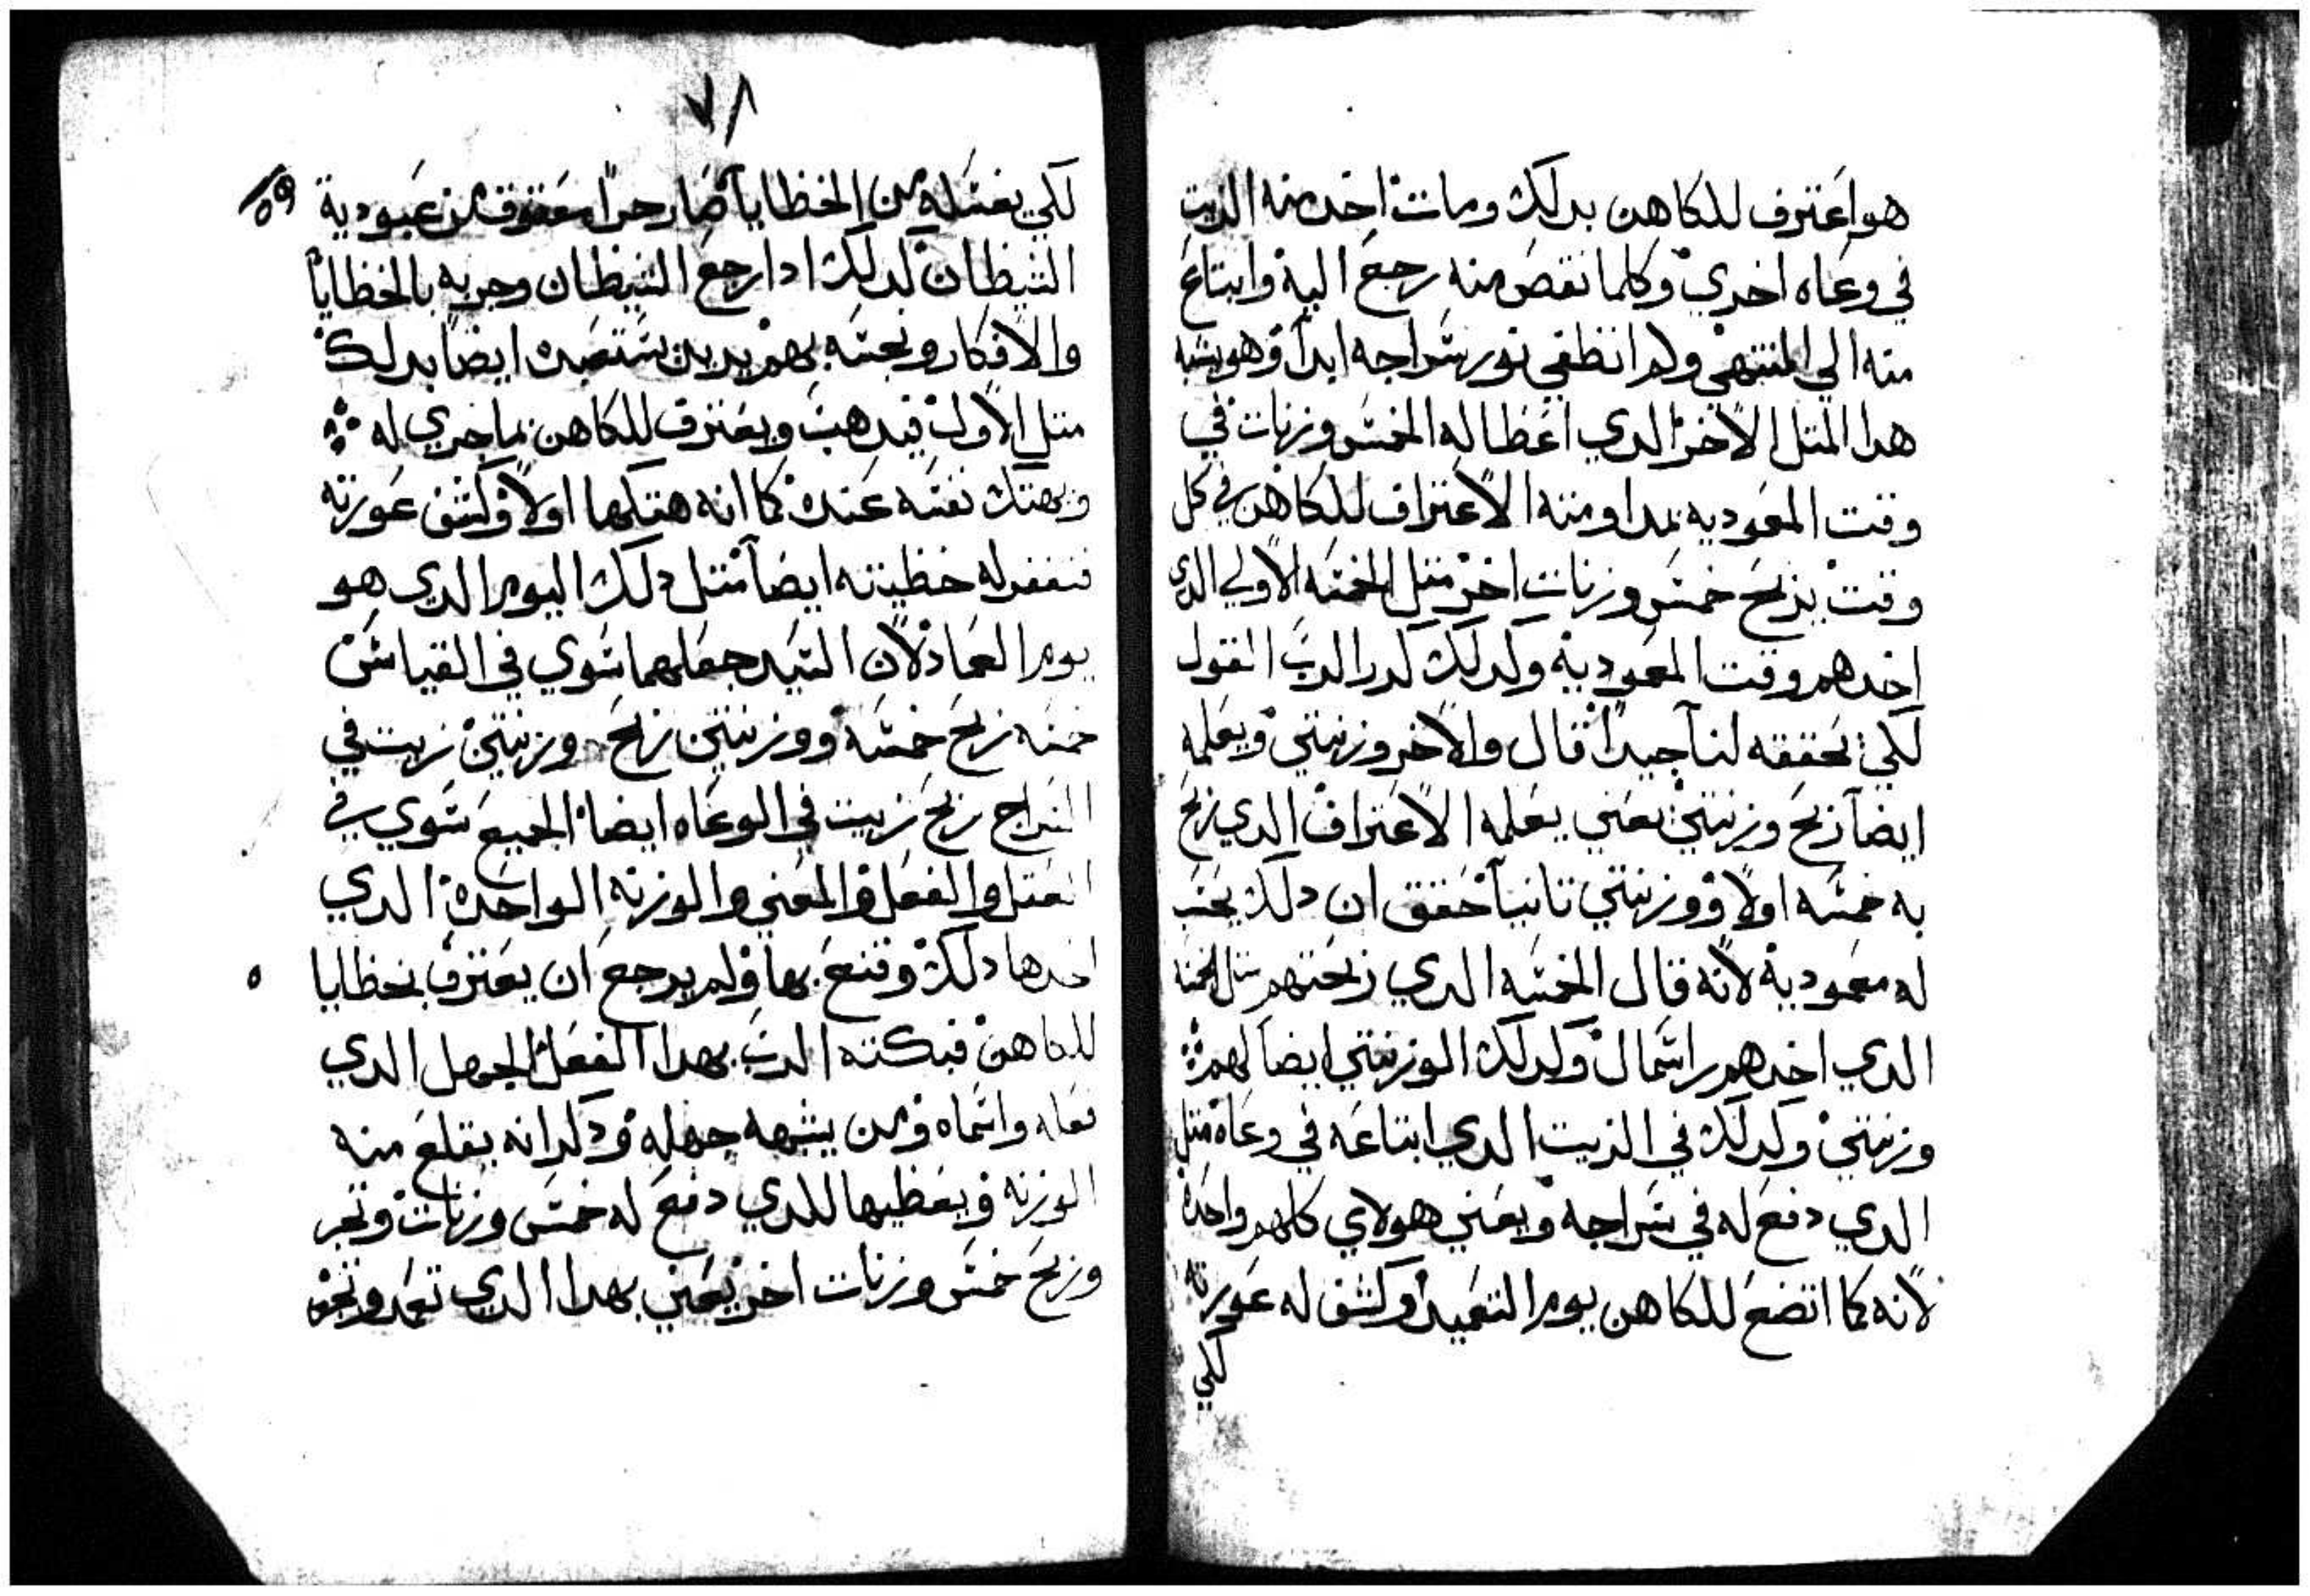 هو اعترف للكاهن بدلك ومات اخد منه الزيت
في وعاه اخري وكلما نقص منه رجع اليه وابتاع
منه الي المنتهي ولم انطفي نور سراجه ابدا وهو يشبه
هدا المتل الاخر الدي اعطا له الخمس وزنات في
وقت المعموديه بمداومته الاعتراف للكاهن في كل
وقت يربح خمس وزنات اخر متل الخمسه الاولي الدي
اخدهم وقت المعمودية ولدلك كرر الرب القول
لكي يحققه لنا جيدا قال والاخر وزنتين ويعلمه
ايضا ربح وزنتين يعني يعلمه الاعتراف الدي ربح
به خمسه اولا ووزنتين تانيا حقق ان دلك يحسب
له معمودية لانه قال الخمسه الدي ربحتهم متل الخمسه
الدي اخدهم راسمال وكدلك الوزنتين ايضا لهم
وزنتين وكدلك في الزيت الدي ابتاعه في وعاه متل
الدي دفع له في سراجه ويعني هولاي كلهم واحده
لانه كما اتضع للكاهن يوم التعميد وكشف له عورته
لكي
٧٨
٥٩
لكي يغسله من الخطايا صار حرا معتوق من عبودية
الشيطان لدلك ادا رجع الشيطان وجربه بالخطايا
والافكار ونجسه بهم يريد يستعبده ايضا بدلك
متل الاول فيدهب ويعترف للكاهن بما جري له
ويهتك نفسه عنده كما انه هتكها اولا وكشف عورته
فتغفر له خطيته ايضا متل دلك اليوم الدي هو
يوم العماد لان السيد جعلهما سوي في القياس
خمسه ربح خمسه ووزنتين ربح وزنتين زيت في
السراج ربح زيت في الوعاه ايضا الجميع سوي في
المتل والفعل والمعني والوزنه الواحده الدي
اخدها دلك وقنع بها ولم يرجع ان يعترف بخطايا
للكاهن فبكته الرب بهدا الفعل الجهل الدي
فعله واسماه ومن يشبهه جهله ودكر انه يقلع منه
الوزنه ويعطيها للدي دفع له خمس وزنات وتجر
وربح خمس وزنات اخر يعني بهدا الدي تعمد وتجر